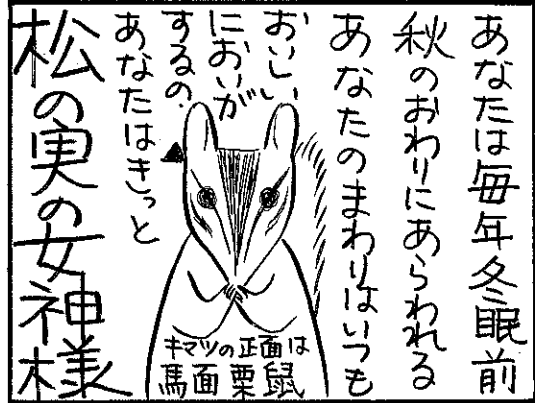 あなたは毎年冬眠前
秋のおわりにあらわれる
あなたのまわりはいつも
おいしい
においが
するの、
あなたはきっと
松の実の女神様
キマツの正面は
馬面栗鼠